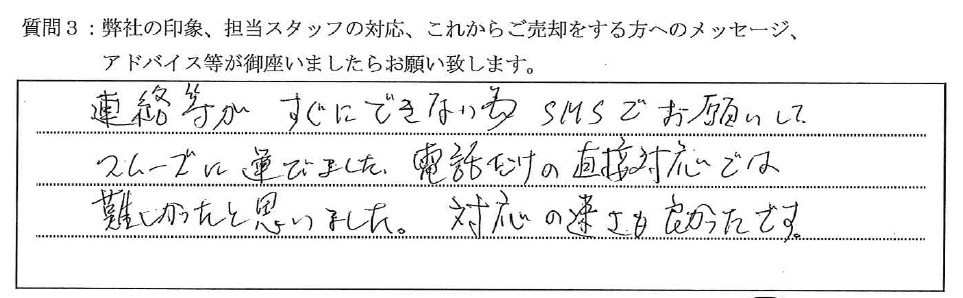 質問３：弊社の印象、担当スタッフの対応、これからご売却をする方へのメッセージ、
アドバイス等が御座いましたらお願い致します。
連絡等が すぐにできない為 SMSでお願いして
スムーズに運びました。電話だけの直接対応では
難しかったと思いました。 対応の速さも良かったです。